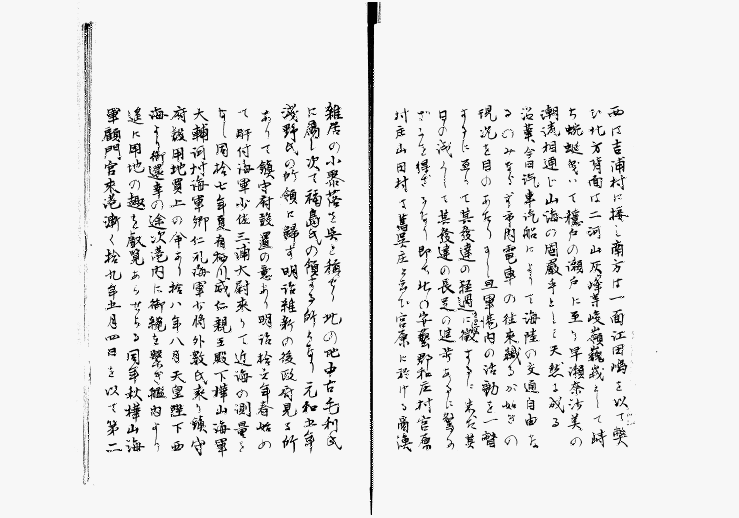 西は吉浦村に接し南方は一面江田嶋を以て擁
ひ北方背面は二河山灰峰等峻嶺巍峩として峙
ち蜿蜒曳いて穏戸の瀬戸に至り早瀬奈沙美の
潮流相通じ山海の固厳乎として天然を成る
沿革今日汽車汽船によりて海陸の交通自由な
るのみならず市内電車の往来織るが如きの
現況を目のあたり 且軍港内の活動を一瞥
するに至りて其発達の経過に徴するに未だ其
日の浅くして其発達の長足の進歩あるに驚か
ざるを得ざるなり即ち此の安藝郡和庄村宮原
村庄山田村は旧呉庄と云ひ宮原に於ける商漁
雑居の小聚落を呉と称せり此の地中古毛利氏
に属し次て福島氏の領する所となり元和五年
浅野氏の所領に歸す明治維新の後政府見る所
ありて鎮守府設置の意あり明治拾六年春始め
て肝付海軍少佐三浦大尉来りて近海の測量を
なし同拾七年夏有栖川威仁親王殿下樺山海軍
大輔河村海軍卿仁礼海軍少将外数氏来り鎮守
府設用地買上の令あり拾八年八月天皇陛下西
海より御還幸の途次港内に御鑑を繋ぎ艦内より
遙に用地の趣を叡覧あらせらる同年秋樺山海
軍顧問官来港漸く拾九年五月四日を以て第二